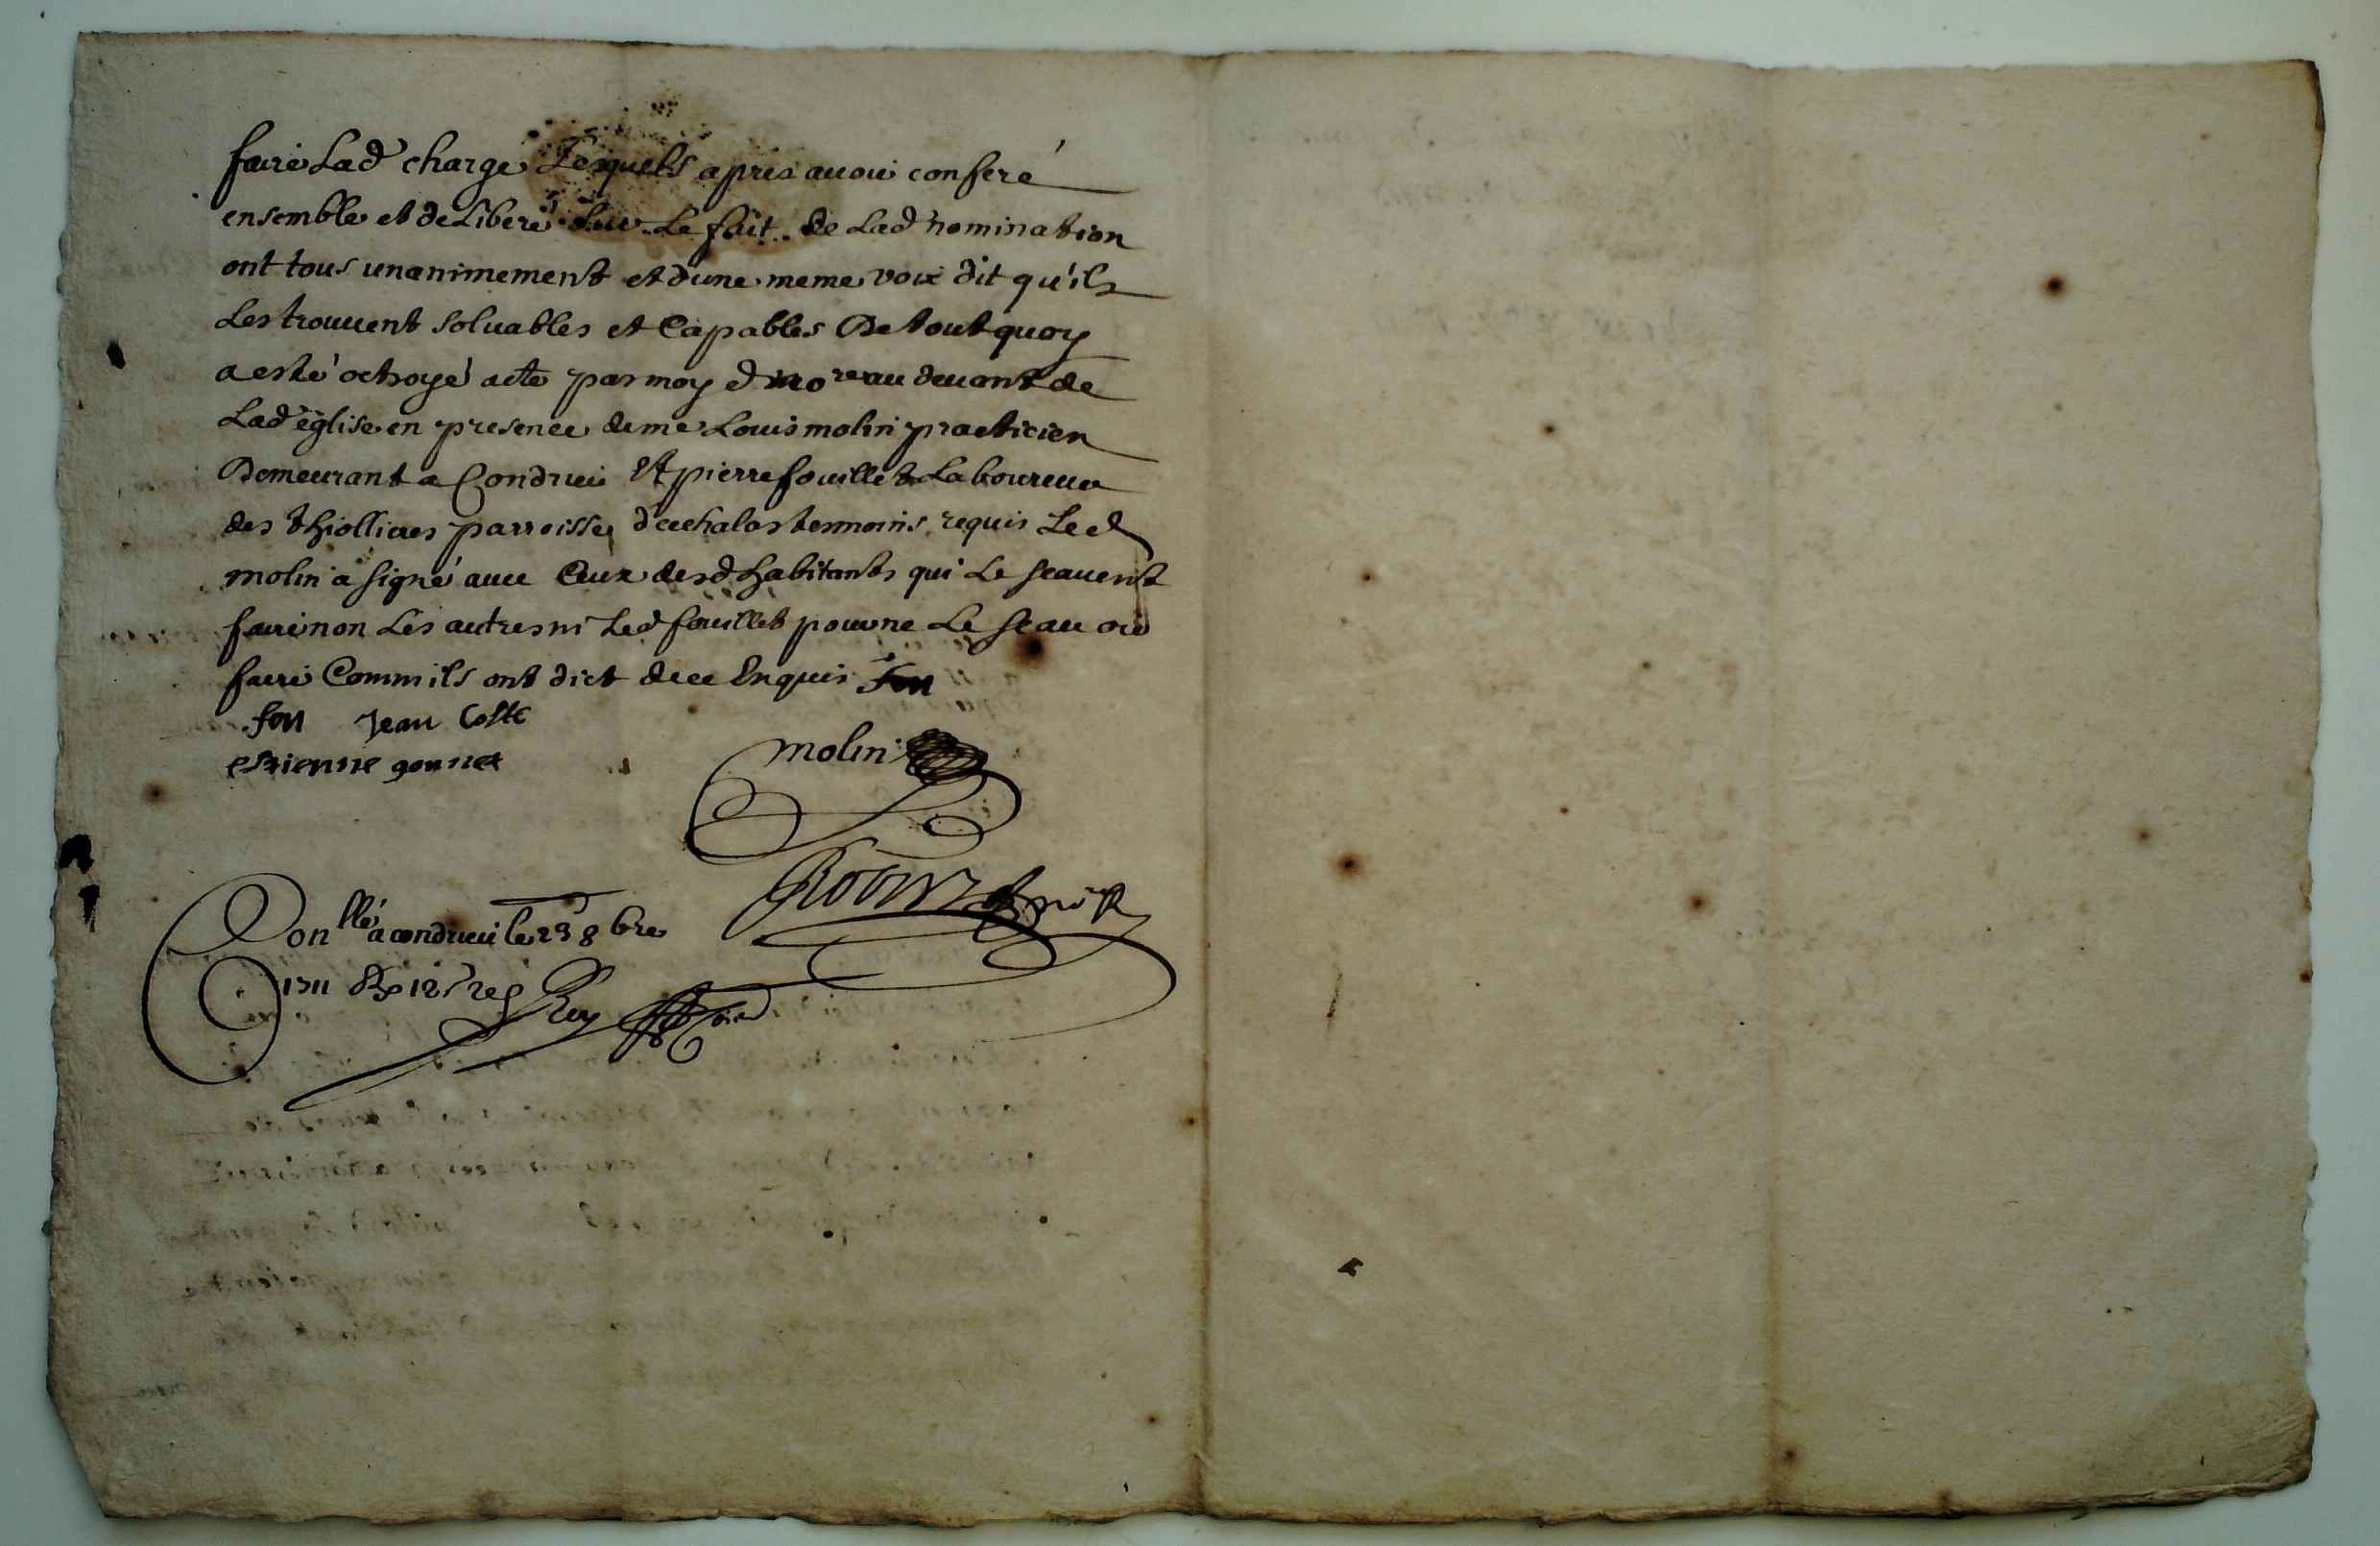 faire Lad charge Lesquels apres auoir conferé
ensemble et deLiberé sur Le fait de Lad nomination
ont tous unanimement et dune meme voix dit qu'ils
Les trouuent soluables et Capables De tout quoy
a esté octroyé acte par moy d nore au deuant de
Lad église en presence de me Louis molin practicien
Demeurant a Condrieu Et pierre fouillet Laboureur
des thiollieres parroisse d'echalas tesmoins requis Led
molin a signé auec Ceux desd habitants qui Le scauent
faire non Les autres ni Led fouillet pour ne Le scauoir
faire Comm ils ont dict de ce Enquis
fon Jean Coste
estienne gonnet
molin
Conllé a condrieu le 23 8bre
1711 Rx 12s